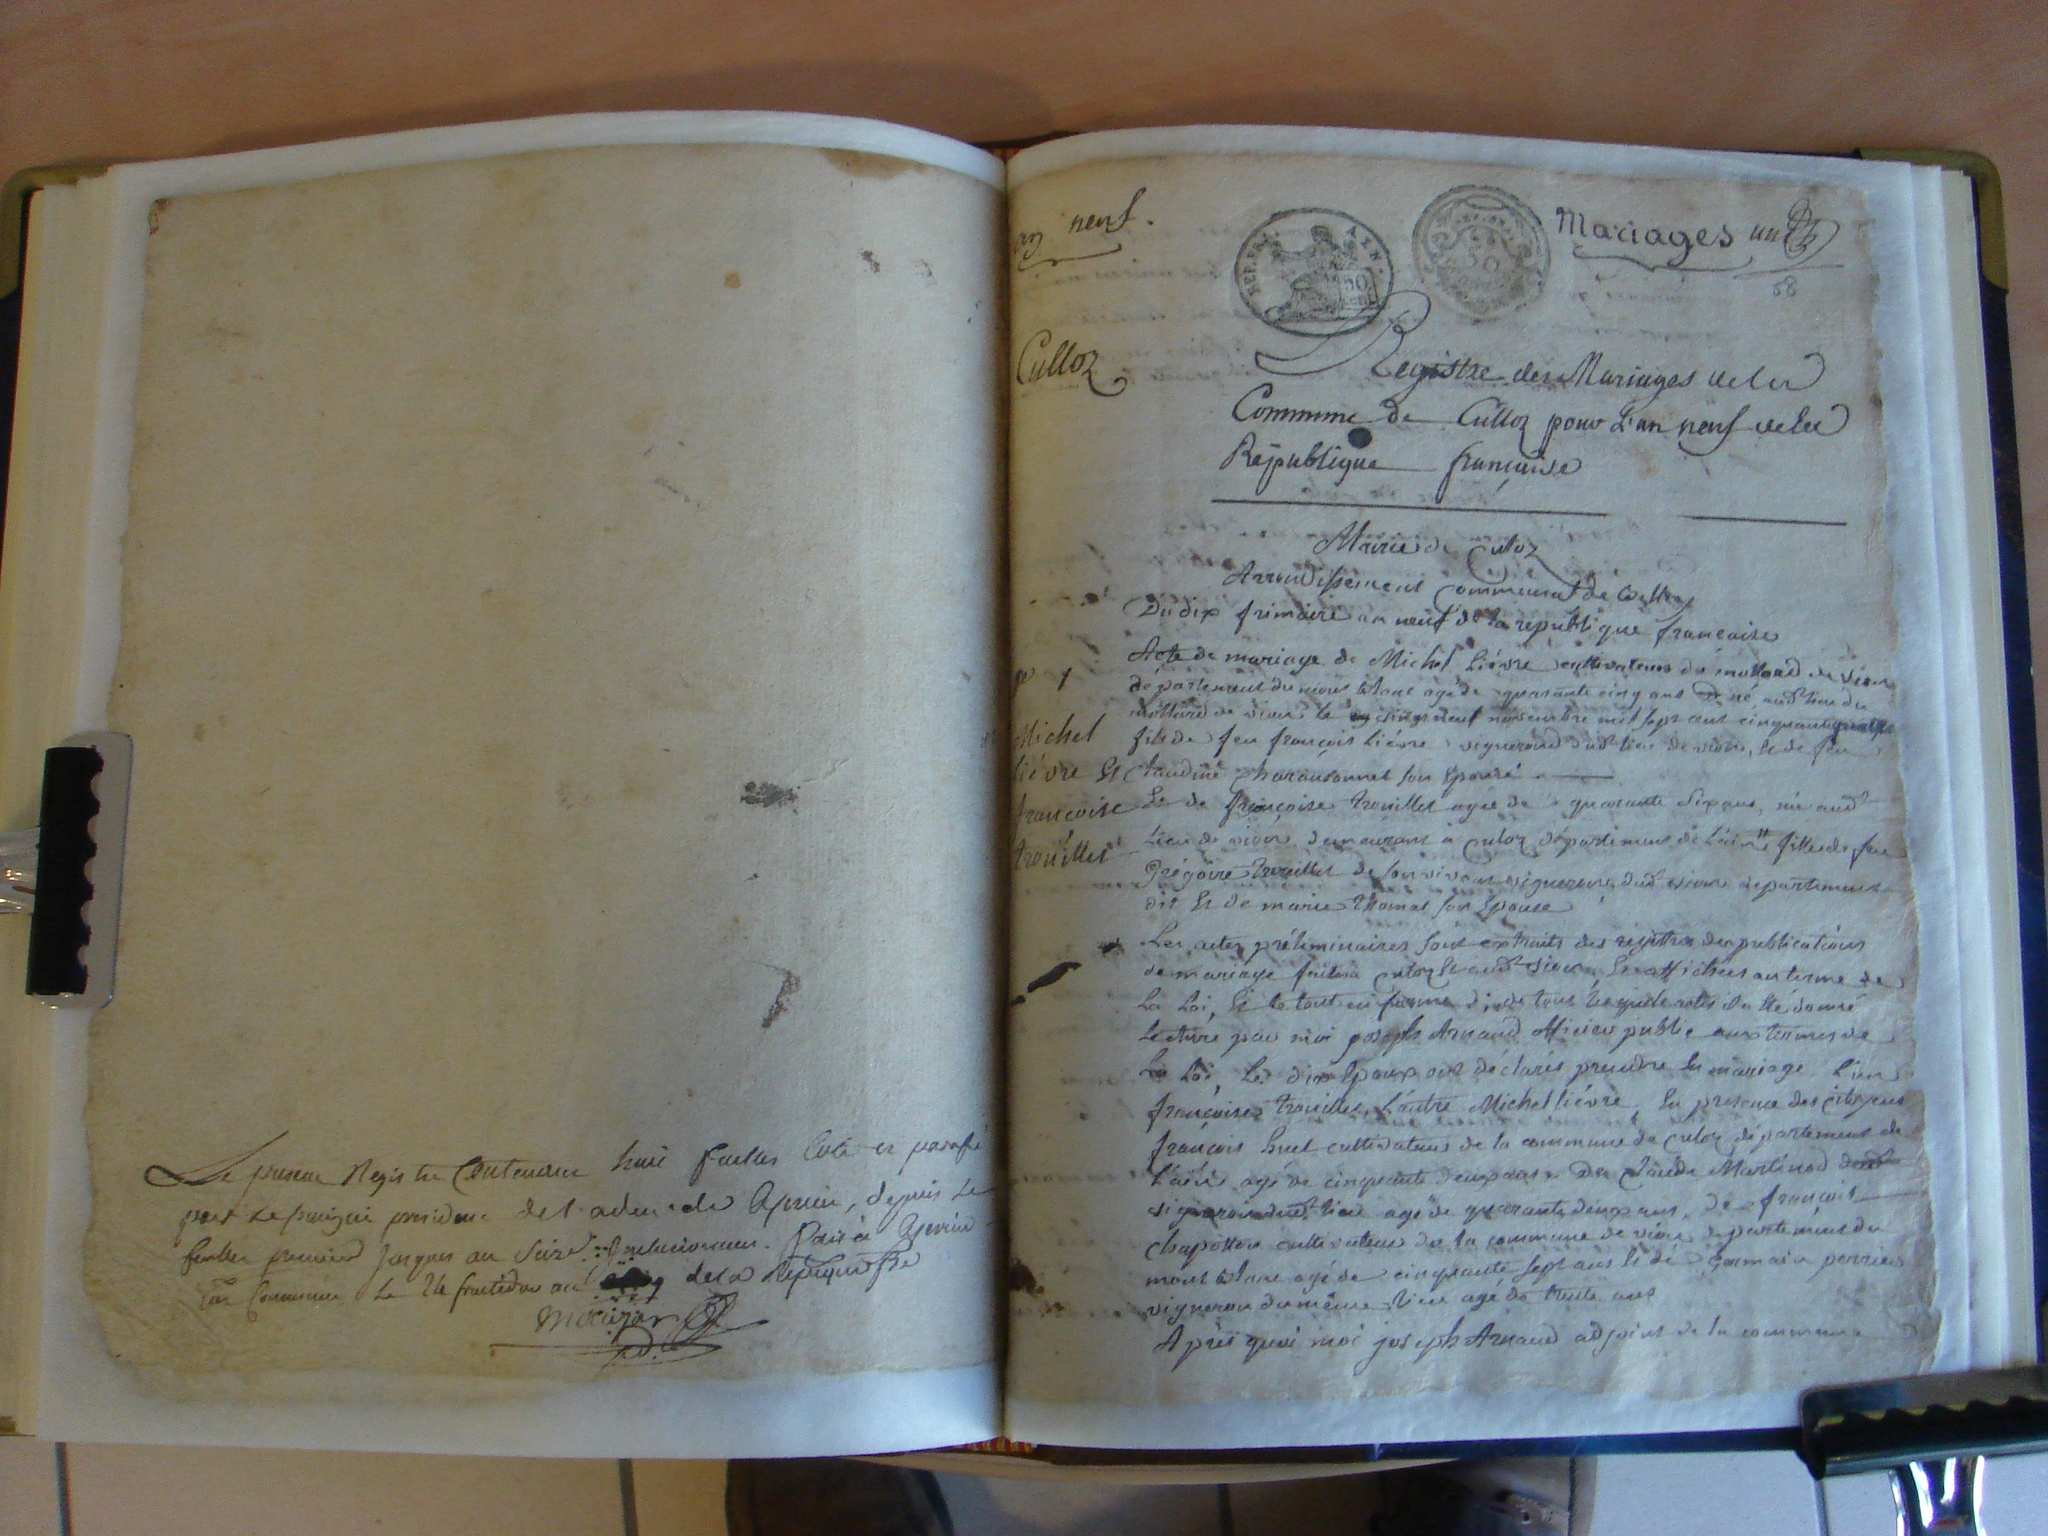 Le present Registre Contenant huit feuilles Coté et paraffé
par
feuillet premier jusques au
Commune Le 24 fructidor an de la Republique fse
an neuf.
Mariages un
68
REP. FRA.
50
Culloz
Registre des Mariages de la
Commune de Culloz pour L'an neuf de la
République françaisse
Mairie de Culoz
Arrondissement communal de Belley
Du dix frimaire an neuf de la republique francaise
Acte de mariage de Michel Liévre cultivateur du mollard de vion
département du mont blanc agé de quarante cinq ans né audt lieu du
mollard de vion le neuf novembre mil sept cent cinquante
fils de feu françois Liévre vigneron dudt lieu de vion, et de feu
Claudine son Epouse
Michel
liévre Et
françoise
trouillet
Et de françoise trouillet agée de quarante six ans, née audt
Lieu de vion demeurant a culoz département de L'ain fille de feu
Grégoire trouillet de son vivant vigneron dudt vion departement
dit Et de marie thomas son Epouse
Les actes préliminaires sont extraits des registres des publications
de mariage faites a culoz et audt vion, Et affichés au terme de
La Loi, Et le tout en forme, de tous Lesquels actes il a été donné
Lecture par moi joseph Arnaud officier public aux termes de
La Loi, Les dits Epoux ont déclarés prendre En mariage L'un
françoise trouillet, L'autre Michel liévre, En presence des citoyens
françois huet cultivateur de la commune de culoz département de
L'ain agé de cinquante deux ans De Claude Martinod
vigneron dudt lieu agé de quarante deux ans, de françois
Chapotton cultivateur de la commune de vion departement du
mont blanc agé de cinquante sept ans Et de Germain perrier
vigneron du même Lieu agé de trente ans
Après quoi moi joseph Arnaud adjoint de la commune